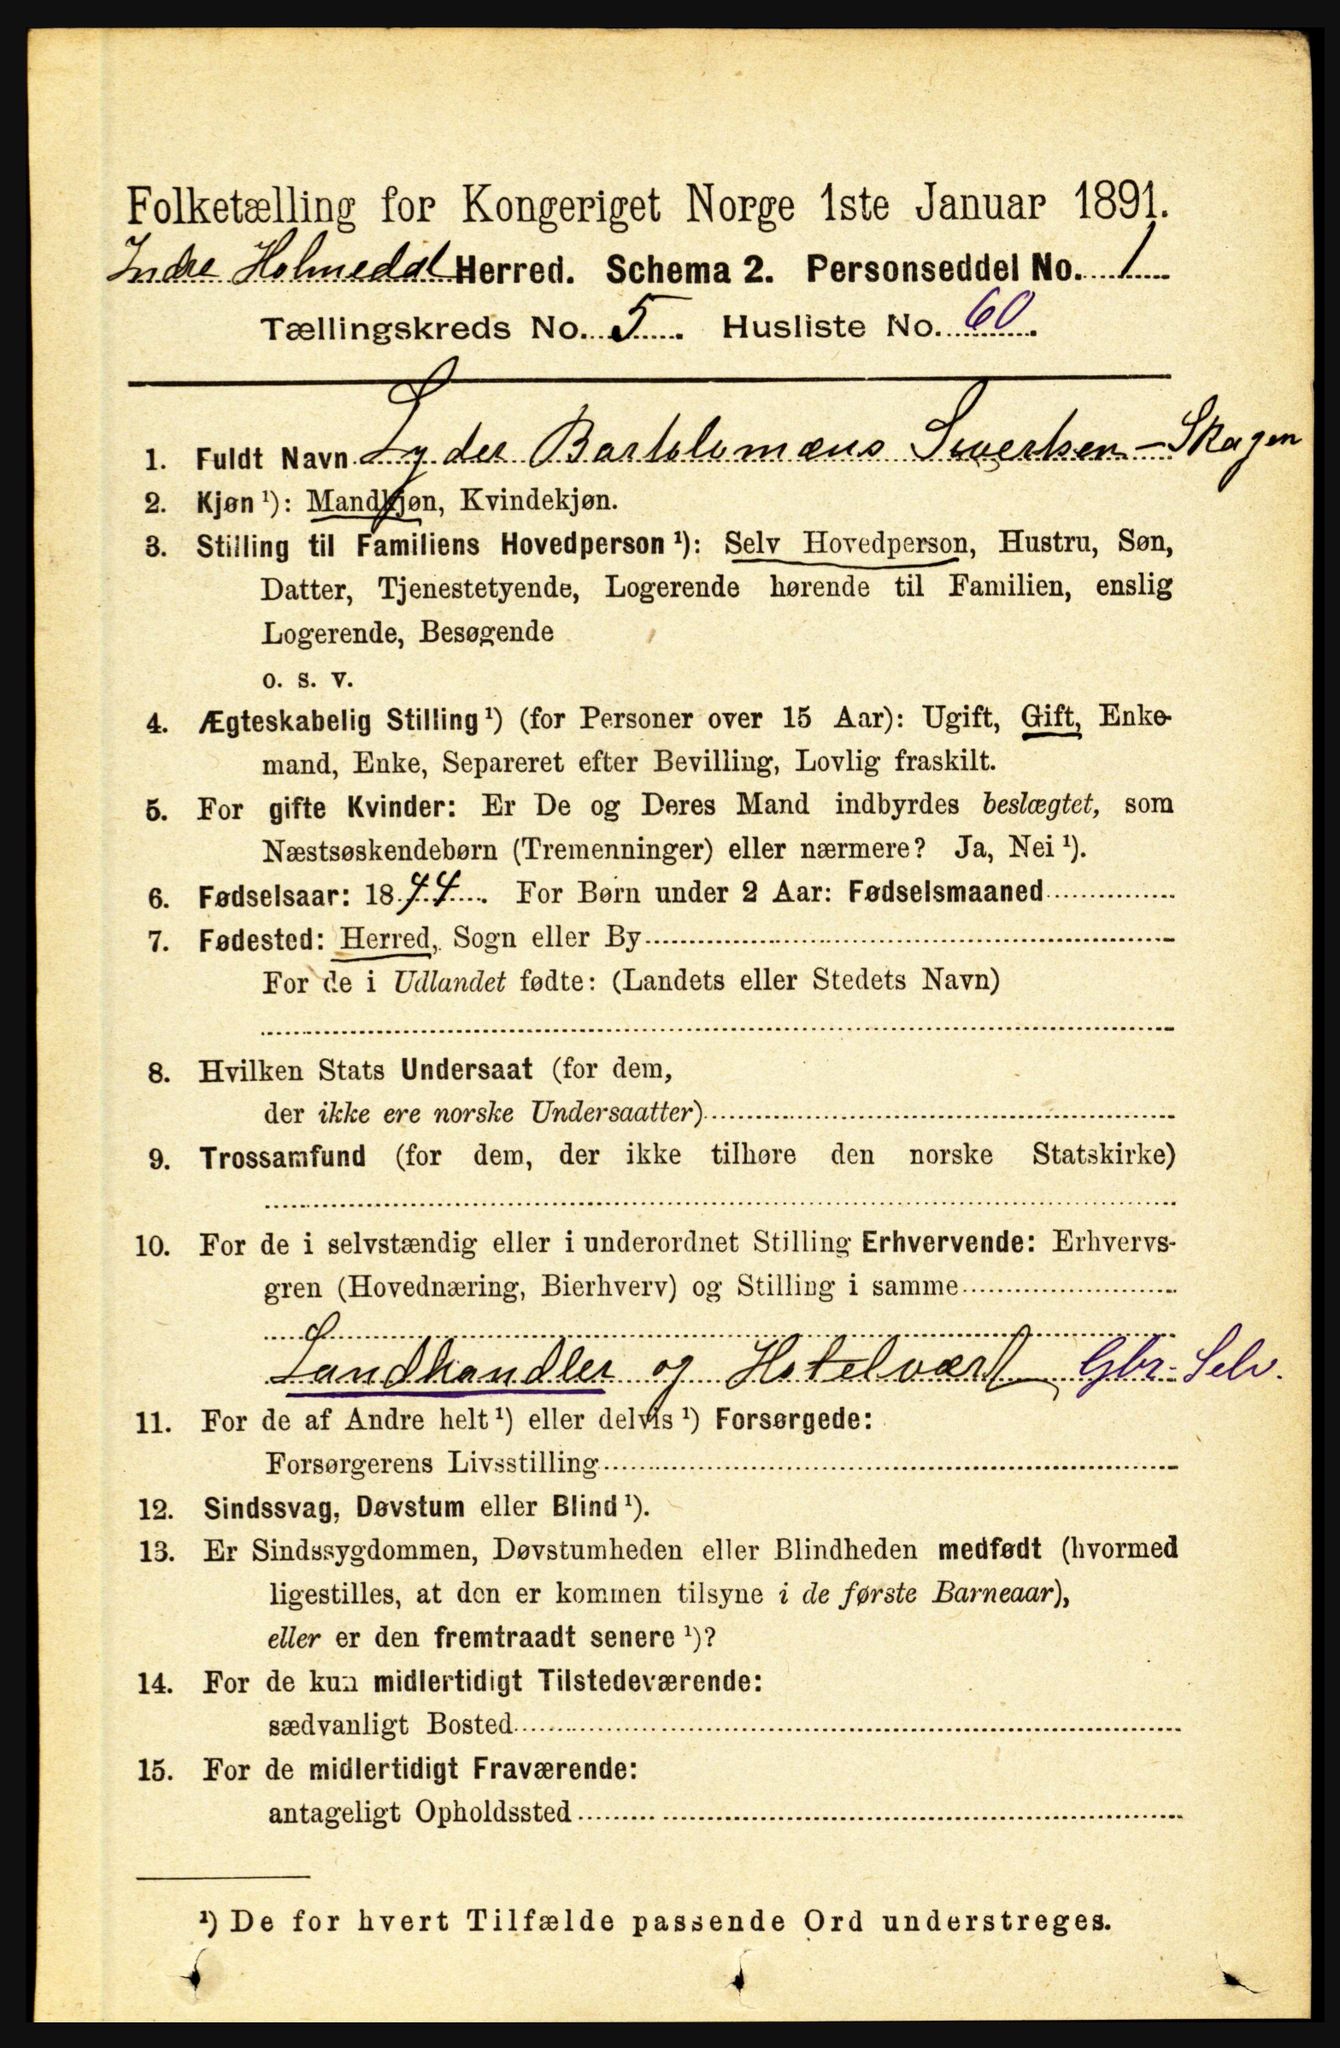 Folketælling for Kongeriget Norge 1ste Januar 1891.
Indre Holmedal Herred. Schema 2. Personseddel No. 1
Tællingskreds No. 5. Husliste No. 60.
1. Fuldt Navn Lyder Bartolomæus Sivertsen - Skagen
2. Kjøn ¹): Mandkjøn, Kvindekjøn.
3. Stilling til Familiens Hovedperson ¹): Selv Hovedperson, Hustru, Søn,
Datter, Tjenestetyende, Logerende hørende til Familien, enslig
Logerende, Besøgende
o. s. v.
4. Ægteskabelig Stilling ¹) (for Personer over 15 Aar): Ugift, Gift, Enke-
mand, Enke, Separeret efter Bevilling, Lovlig fraskilt.
5. For gifte Kvinder: Er De og Deres Mand indbyrdes beslægtet, som
Næstsøskendebørn (Tremenninger) eller nærmere? Ja, Nei ¹).
6. Fødselsaar: 1844. For Børn under 2 Aar: Fødselsmaaned
7. Fødested: Herred, Sogn eller By
For de i Udlandet fødte: (Landets eller Stedets Navn)
8. Hvilken Stats Undersaat (for dem,
der ikke ere norske Undersaatter)
9. Trossamfund (for dem, der ikke tilhøre den norske Statskirke)
10. For de i selvstændig eller i underordnet Stilling Erhvervende: Erhvervs-
gren (Hovednæring, Bierhverv) og Stilling i samme
Landhandler og Hotelvært Gbr. Selv.
11. For de af Andre helt ¹) eller delvis ¹) Forsørgede:
Forsørgerens Livsstilling
12. Sindssvag, Døvstum eller Blind ¹).
13. Er Sindssygdommen, Døvstumheden eller Blindheden medfødt (hvormed
ligestilles, at den er kommen tilsyne i de første Barneaar),
eller er den fremtraadt senere ¹)?
14. For de kun midlertidigt Tilstedeværende:
sædvanligt Bosted
15. For de midlertidigt Fraværende:
antageligt Opholdssted
¹) De for hvert Tilfælde passende Ord understreges.